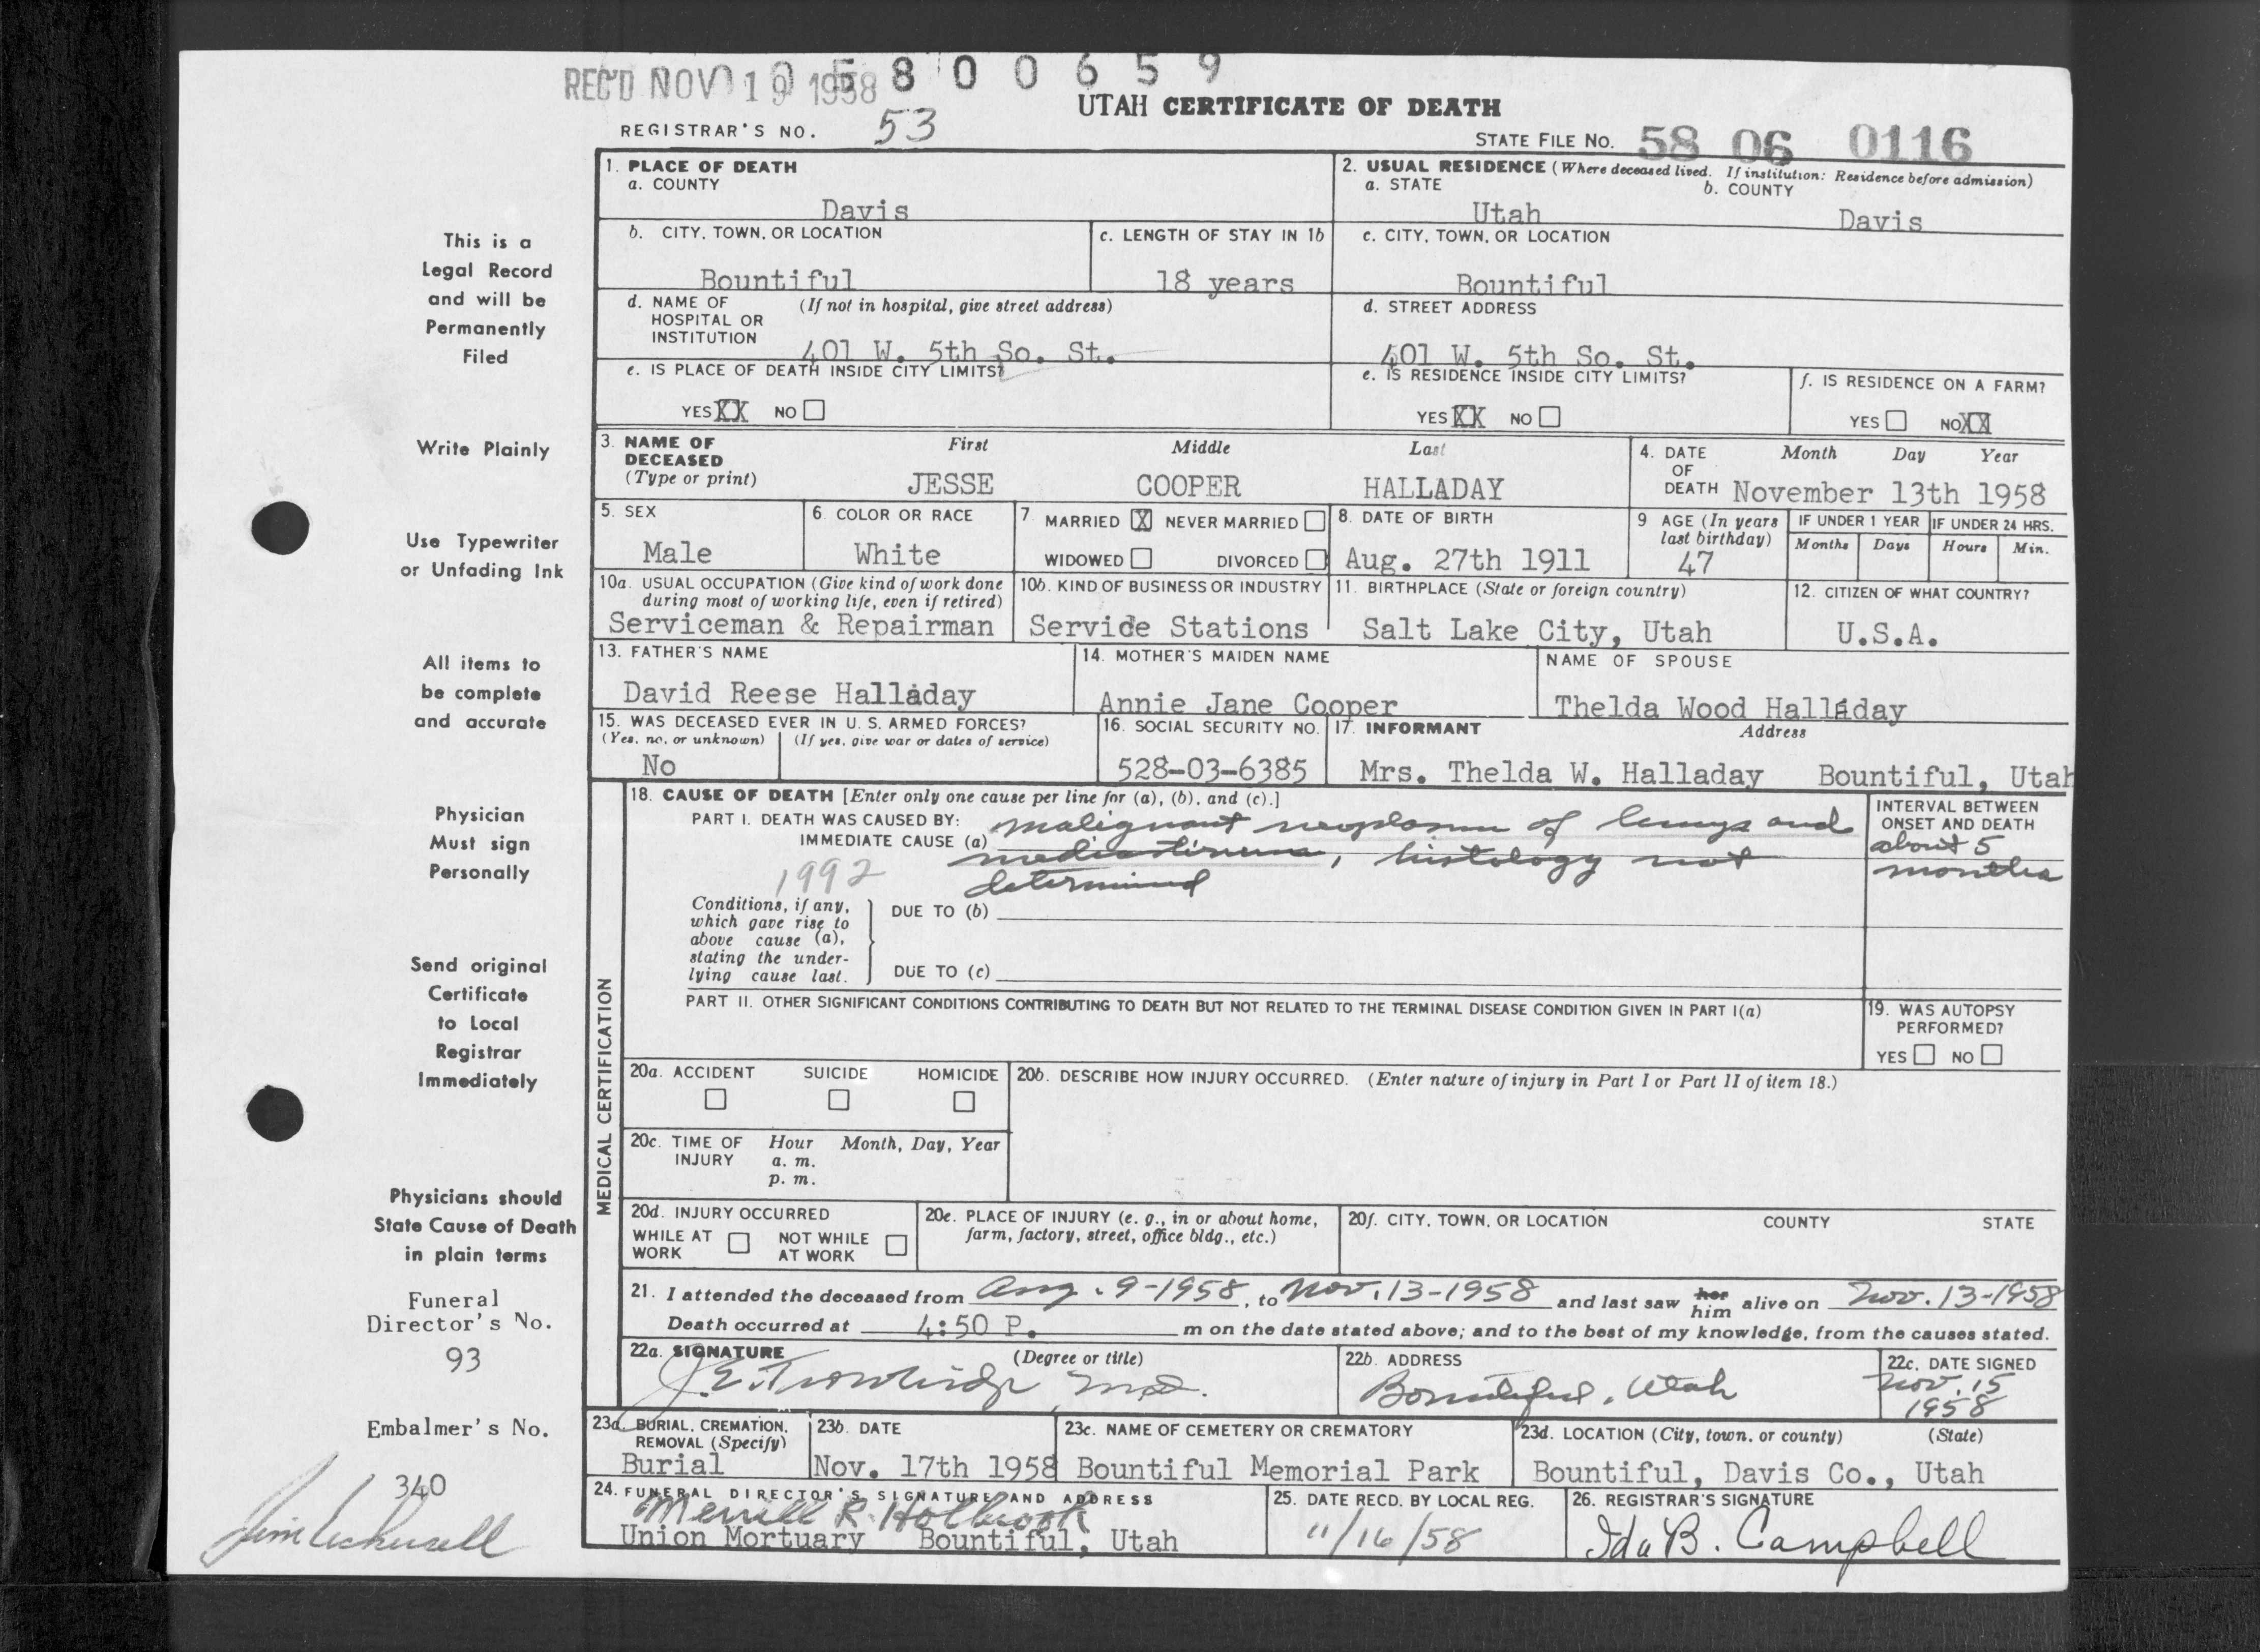 REC'D NOV 19 1958 8 0 0 6 5 9
UTAH CERTIFICATE OF DEATH
REGISTRAR'S NO. 53
STATE FILE No. 58 06 0116
1. PLACE OF DEATH
a. COUNTY
Davis
2. USUAL RESIDENCE (Where deceased lived. If institution: Residence before admission)
a. STATE b. COUNTY
Utah Davis
b. CITY, TOWN, OR LOCATION
Bountiful
c. LENGTH OF STAY IN 1b
18 years
c. CITY, TOWN, OR LOCATION
Bountiful
d. NAME OF (If not in hospital, give street address)
HOSPITAL OR
INSTITUTION
401 W. 5th So. St.
d. STREET ADDRESS
401 W. 5th So. St.
e. IS PLACE OF DEATH INSIDE CITY LIMITS?
YES XX NO
e. IS RESIDENCE INSIDE CITY LIMITS?
YES XX NO
f. IS RESIDENCE ON A FARM?
YES NO XX
3. NAME OF DECEASED (Type or print)
First Middle Last
JESSE COOPER HALLADAY
4. DATE OF DEATH
Month Day Year
November 13th 1958
5. SEX
Male
6. COLOR OR RACE
White
7. MARRIED X NEVER MARRIED
WIDOWED DIVORCED
8. DATE OF BIRTH
Aug. 27th 1911
9 AGE (In years last birthday)
47
IF UNDER 1 YEAR IF UNDER 24 HRS.
Months Days Hours Min.
10a. USUAL OCCUPATION (Give kind of work done
during most of working life, even if retired)
Serviceman & Repairman
10b. KIND OF BUSINESS OR INDUSTRY
Service Stations
11. BIRTHPLACE (State or foreign country)
Salt Lake City, Utah
12. CITIZEN OF WHAT COUNTRY?
U.S.A.
13. FATHER'S NAME
David Reese Halladay
14. MOTHER'S MAIDEN NAME
Annie Jane Cooper
NAME OF SPOUSE
Thelda Wood Halladay
15. WAS DECEASED EVER IN U. S. ARMED FORCES?
(Yes, no, or unknown) (If yes, give war or dates of service)
No
16. SOCIAL SECURITY NO.
528-03-6385
17. INFORMANT Address
Mrs. Thelda W. Halladay Bountiful, Utah
MEDICAL CERTIFICATION
18. CAUSE OF DEATH [Enter only one cause per line for (a), (b), and (c).]
PART I. DEATH WAS CAUSED BY:
IMMEDIATE CAUSE (a) malignant neoplasm of lungs and
mediastinum, histology not
determined
1992
INTERVAL BETWEEN
ONSET AND DEATH
about 5
months
Conditions, if any,
which gave rise to
above cause (a),
stating the under-
lying cause last.
DUE TO (b)
DUE TO (c)
PART II. OTHER SIGNIFICANT CONDITIONS CONTRIBUTING TO DEATH BUT NOT RELATED TO THE TERMINAL DISEASE CONDITION GIVEN IN PART I(a)
19. WAS AUTOPSY
PERFORMED?
YES NO
20a. ACCIDENT SUICIDE HOMICIDE
20b. DESCRIBE HOW INJURY OCCURRED. (Enter nature of injury in Part I or Part II of item 18.)
20c. TIME OF INJURY
Hour Month, Day, Year
a. m.
p. m.
20d. INJURY OCCURRED
WHILE AT WORK NOT WHILE AT WORK
20e. PLACE OF INJURY (e. g., in or about home,
farm, factory, street, office bldg., etc.)
20f. CITY, TOWN, OR LOCATION COUNTY STATE
21. I attended the deceased from Aug. 9-1958, to Nov. 13-1958 and last saw her him alive on Nov. 13-1958
Death occurred at 4:50 P. m on the date stated above; and to the best of my knowledge, from the causes stated.
22a. SIGNATURE (Degree or title)
J. E. Trowbridge M.D.
22b. ADDRESS
Bountiful, Utah
22c. DATE SIGNED
Nov. 15
1958
23a. BURIAL, CREMATION,
REMOVAL (Specify)
Burial
23b. DATE
Nov. 17th 1958
23c. NAME OF CEMETERY OR CREMATORY
Bountiful Memorial Park
23d. LOCATION (City, town, or county) (State)
Bountiful, Davis Co., Utah
24. FUNERAL DIRECTOR'S SIGNATURE AND ADDRESS
Merrill R. Holbrook
Union Mortuary Bountiful, Utah
25. DATE RECD. BY LOCAL REG.
11/16/58
26. REGISTRAR'S SIGNATURE
Ida B. Campbell
This is a
Legal Record
and will be
Permanently
Filed
Write Plainly
Use Typewriter
or Unfading Ink
All items to
be complete
and accurate
Physician
Must sign
Personally
Send original
Certificate
to Local
Registrar
Immediately
Physicians should
State Cause of Death
in plain terms
Funeral
Director's No.
93
Embalmer's No.
340